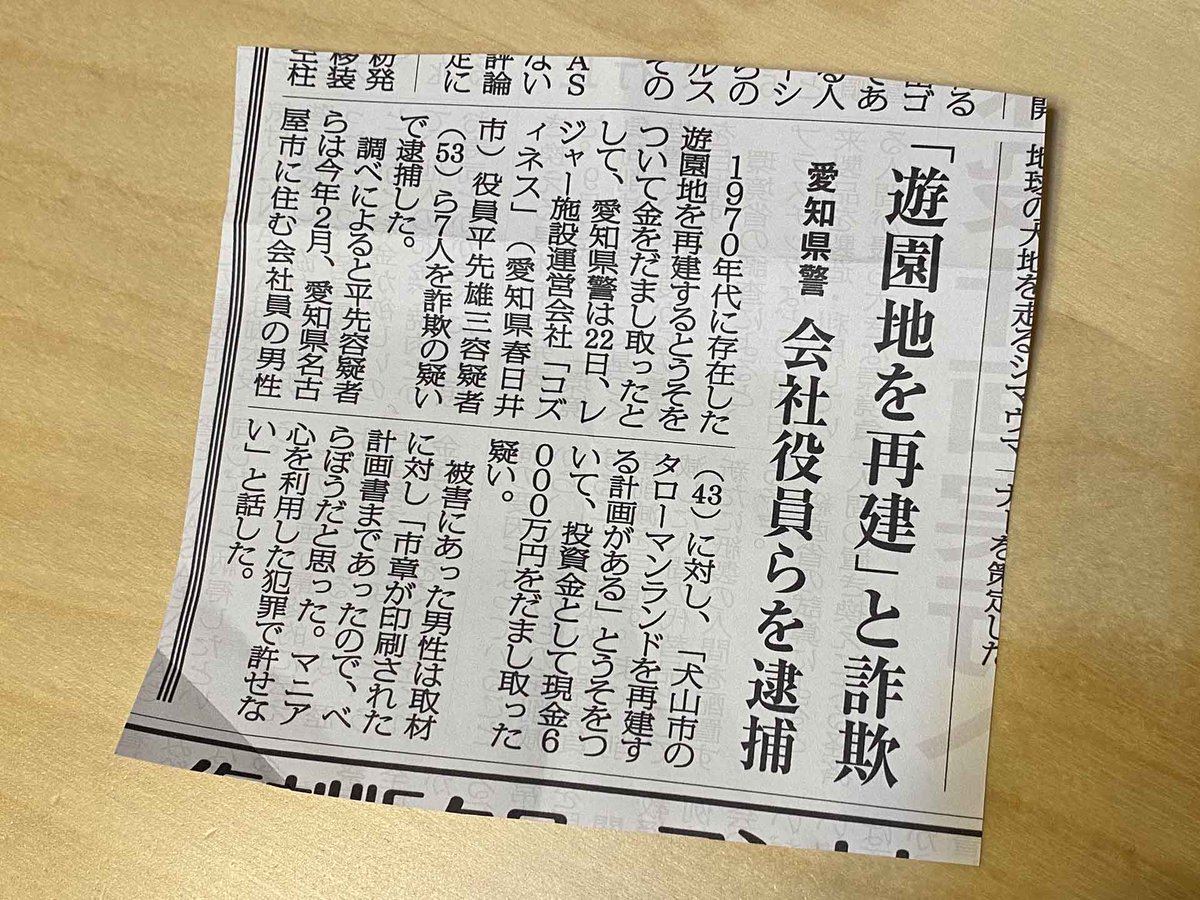 開
地球の大地を走るシマウマ
を策定した
る
であ
る人
ーシ
らの
ルス
その
AS
ない
評論
「遊園地を再建」と詐欺
愛知県警 会社役員らを逮捕
1970年代に存在した
遊園地を再建するとうそを
ついて金をだまし取ったと
して、愛知県警は22日、レ
ジャー施設運営会社「コズ
ィネス」(愛知県春日井
市)役員平先雄三容疑者
(53)ら7人を詐欺の疑い
で逮捕した。
調べによると平先容疑者
らは今年2月、愛知県名古
屋市に住む会社員の男性
(43)に対し、「犬山市の
タローマンランドを再建す
る計画がある」とうそをつ
いて、投資金として現金6
000万円をだまし取った
疑い。
被害にあった男性は取材
に対し「市章が印刷された
計画書まであったので、べ
らぼうだと思った。マニア
心を利用した犯罪で許せな
い」と話した。